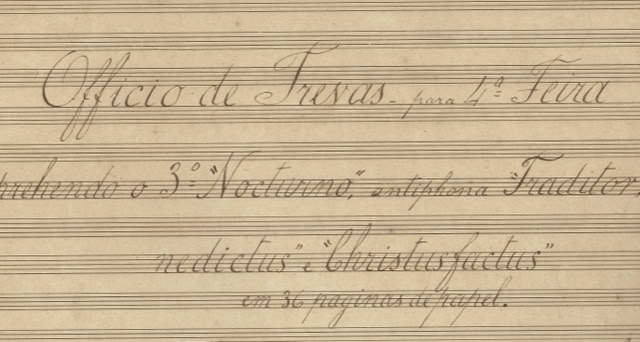 Officio de Trevas - para 4ª Feira
prehendo o 3º "Nocturno", antiphona "Traditor,
nedictus" e "Christus factus"
em 36 paginas de papel.